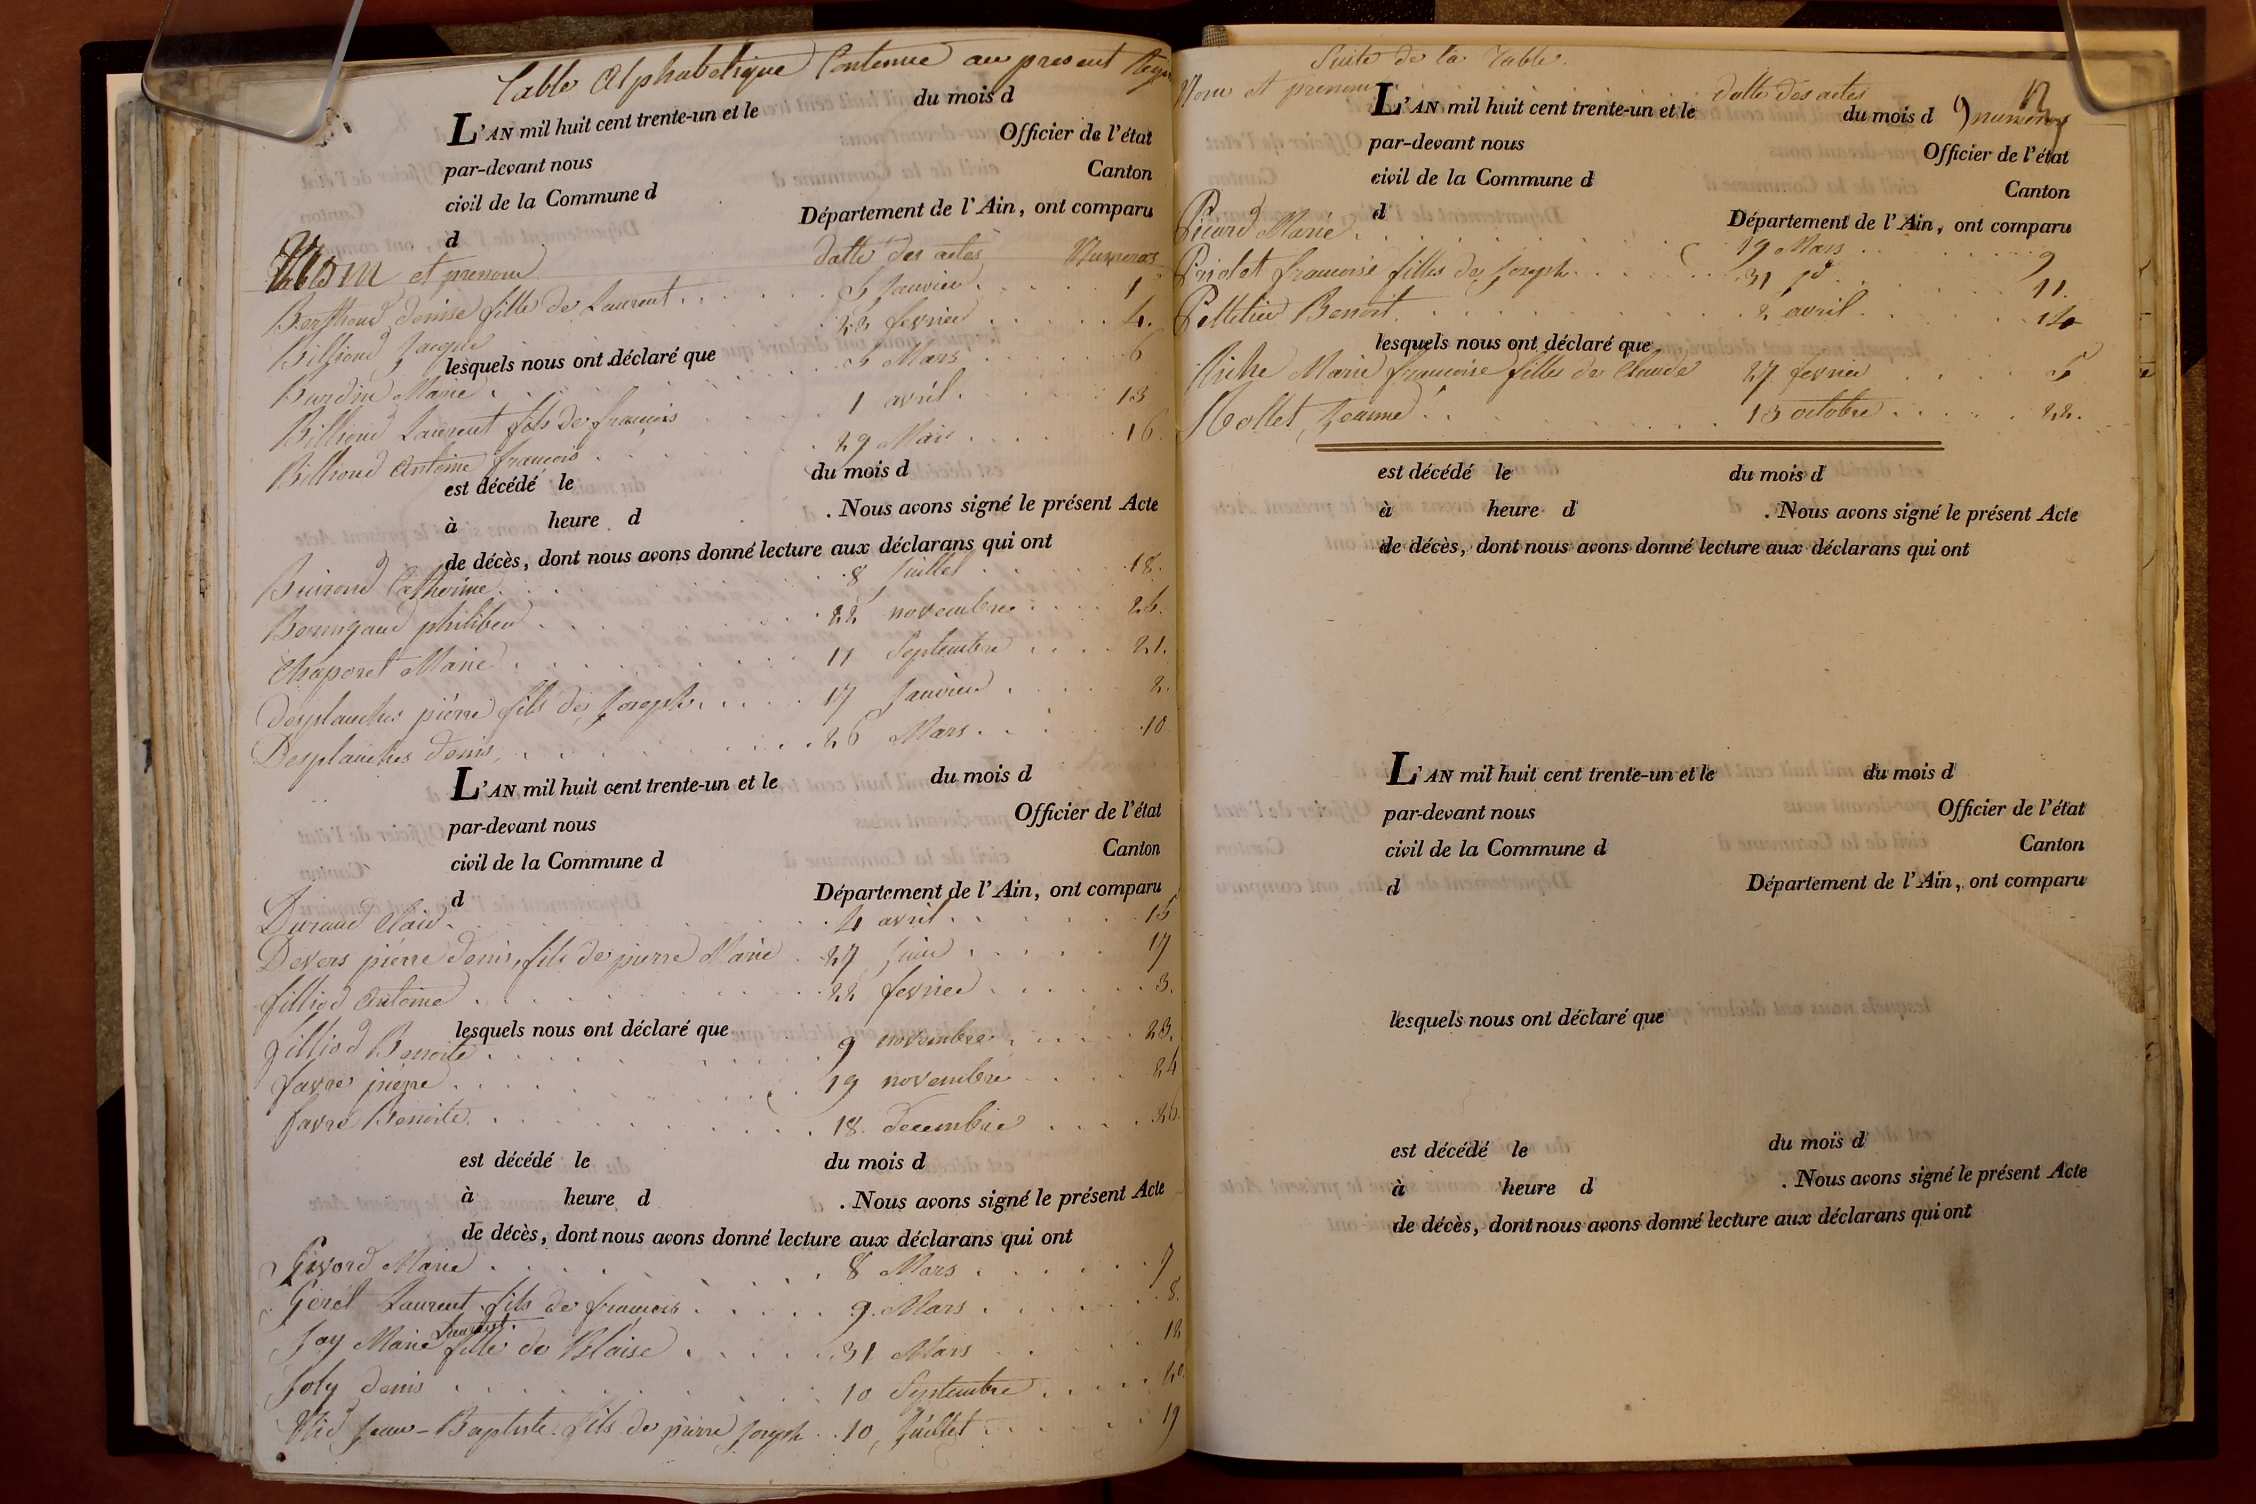 Table Alphabetique Contenue au present Reg
L'AN mil huit cent trente-un et le du mois d
par-devant nous Officier de l'état
civil de la Commune d Canton
d Département de l'Ain, ont comparu
Nom et prenom datte des actes Numeros
Berthoud denise fille de Laurent 5 Janvier 1
Billioud Joseph 23 fevrier 4.
lesquels nous ont déclaré que
Burdin Marie 5 Mars 6
Billioud Laurent fils de françois 1 avril 13
Billioud Antoine françois 29 Mai 16.
est décédé le du mois d
à heure d . Nous avons signé le présent Acte
de décès, dont nous avons donné lecture aux déclarans qui ont
Buiroud Catherine 8 Juillet 18.
philibert 22 novembre 25.
Chaponet Marie 11 Septembre 21.
Desplanches pierre fils de Joseph 17 Janvier 2.
Desplanches denis 26 Mars 10
L'AN mil huit cent trente-un et le du mois d
par-devant nous Officier de l'état
civil de la Commune d Canton
d Département de l'Ain, ont comparu
Durand Clair 4 avril 15
Devers pierre denis, fils de pierre Marie 27 Juin 17
filliod Antoine 22 fevrier 3.
lesquels nous ont déclaré que
filliod Benoite 9 novembre 23.
favre pierre 19 novembre 24
favre Benoite 18 decembre 26.
est décédé le du mois d
à heure d . Nous avons signé le présent Acte
de décès, dont nous avons donné lecture aux déclarans qui ont
Givord Marie 8 Mars 7
Geret Laurent fils de françois 9. Mars 8.
Jay Marie fille de Blaise 31 Mars 12
Joly denis 10 Septembre 20.
Nid Jean-Baptiste fils de pierre Joseph 10 Juillet 19
Suite de la Table.
Nom et prenom datte des actes numeros
L'AN mil huit cent trente-un et le du mois d
par-devant nous Officier de l'état
civil de la Commune d Canton
d Département de l'Ain, ont comparu
Picard Marie 19 Mars 9
Priolet francoise fille de Joseph 31 do 11.
Pelletier Benoit 2 avril 14
lesquels nous ont déclaré que
Riche Marie francoise fille de Claude 27 fevrier 5
Rollet Jeanne 13 octobre 22.
est décédé le du mois d
à heure d . Nous avons signé le présent Acte
de décès, dont nous avons donné lecture aux déclarans qui ont
L'AN mil huit cent trente-un et le du mois d
par-devant nous Officier de l'état
civil de la Commune d Canton
d Département de l'Ain, ont comparu
lesquels nous ont déclaré que
est décédé le du mois d
à heure d . Nous avons signé le présent Acte
de décès, dont nous avons donné lecture aux déclarans qui ont